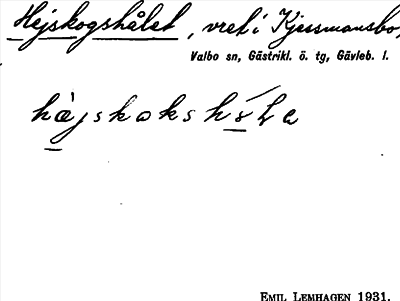 Hejskogshålet, vret i Kjessmansbo,
Valbo sn, Gästrikl. ö. tg, Gävleb. l.
EMIL LEMHAGEN 1931.